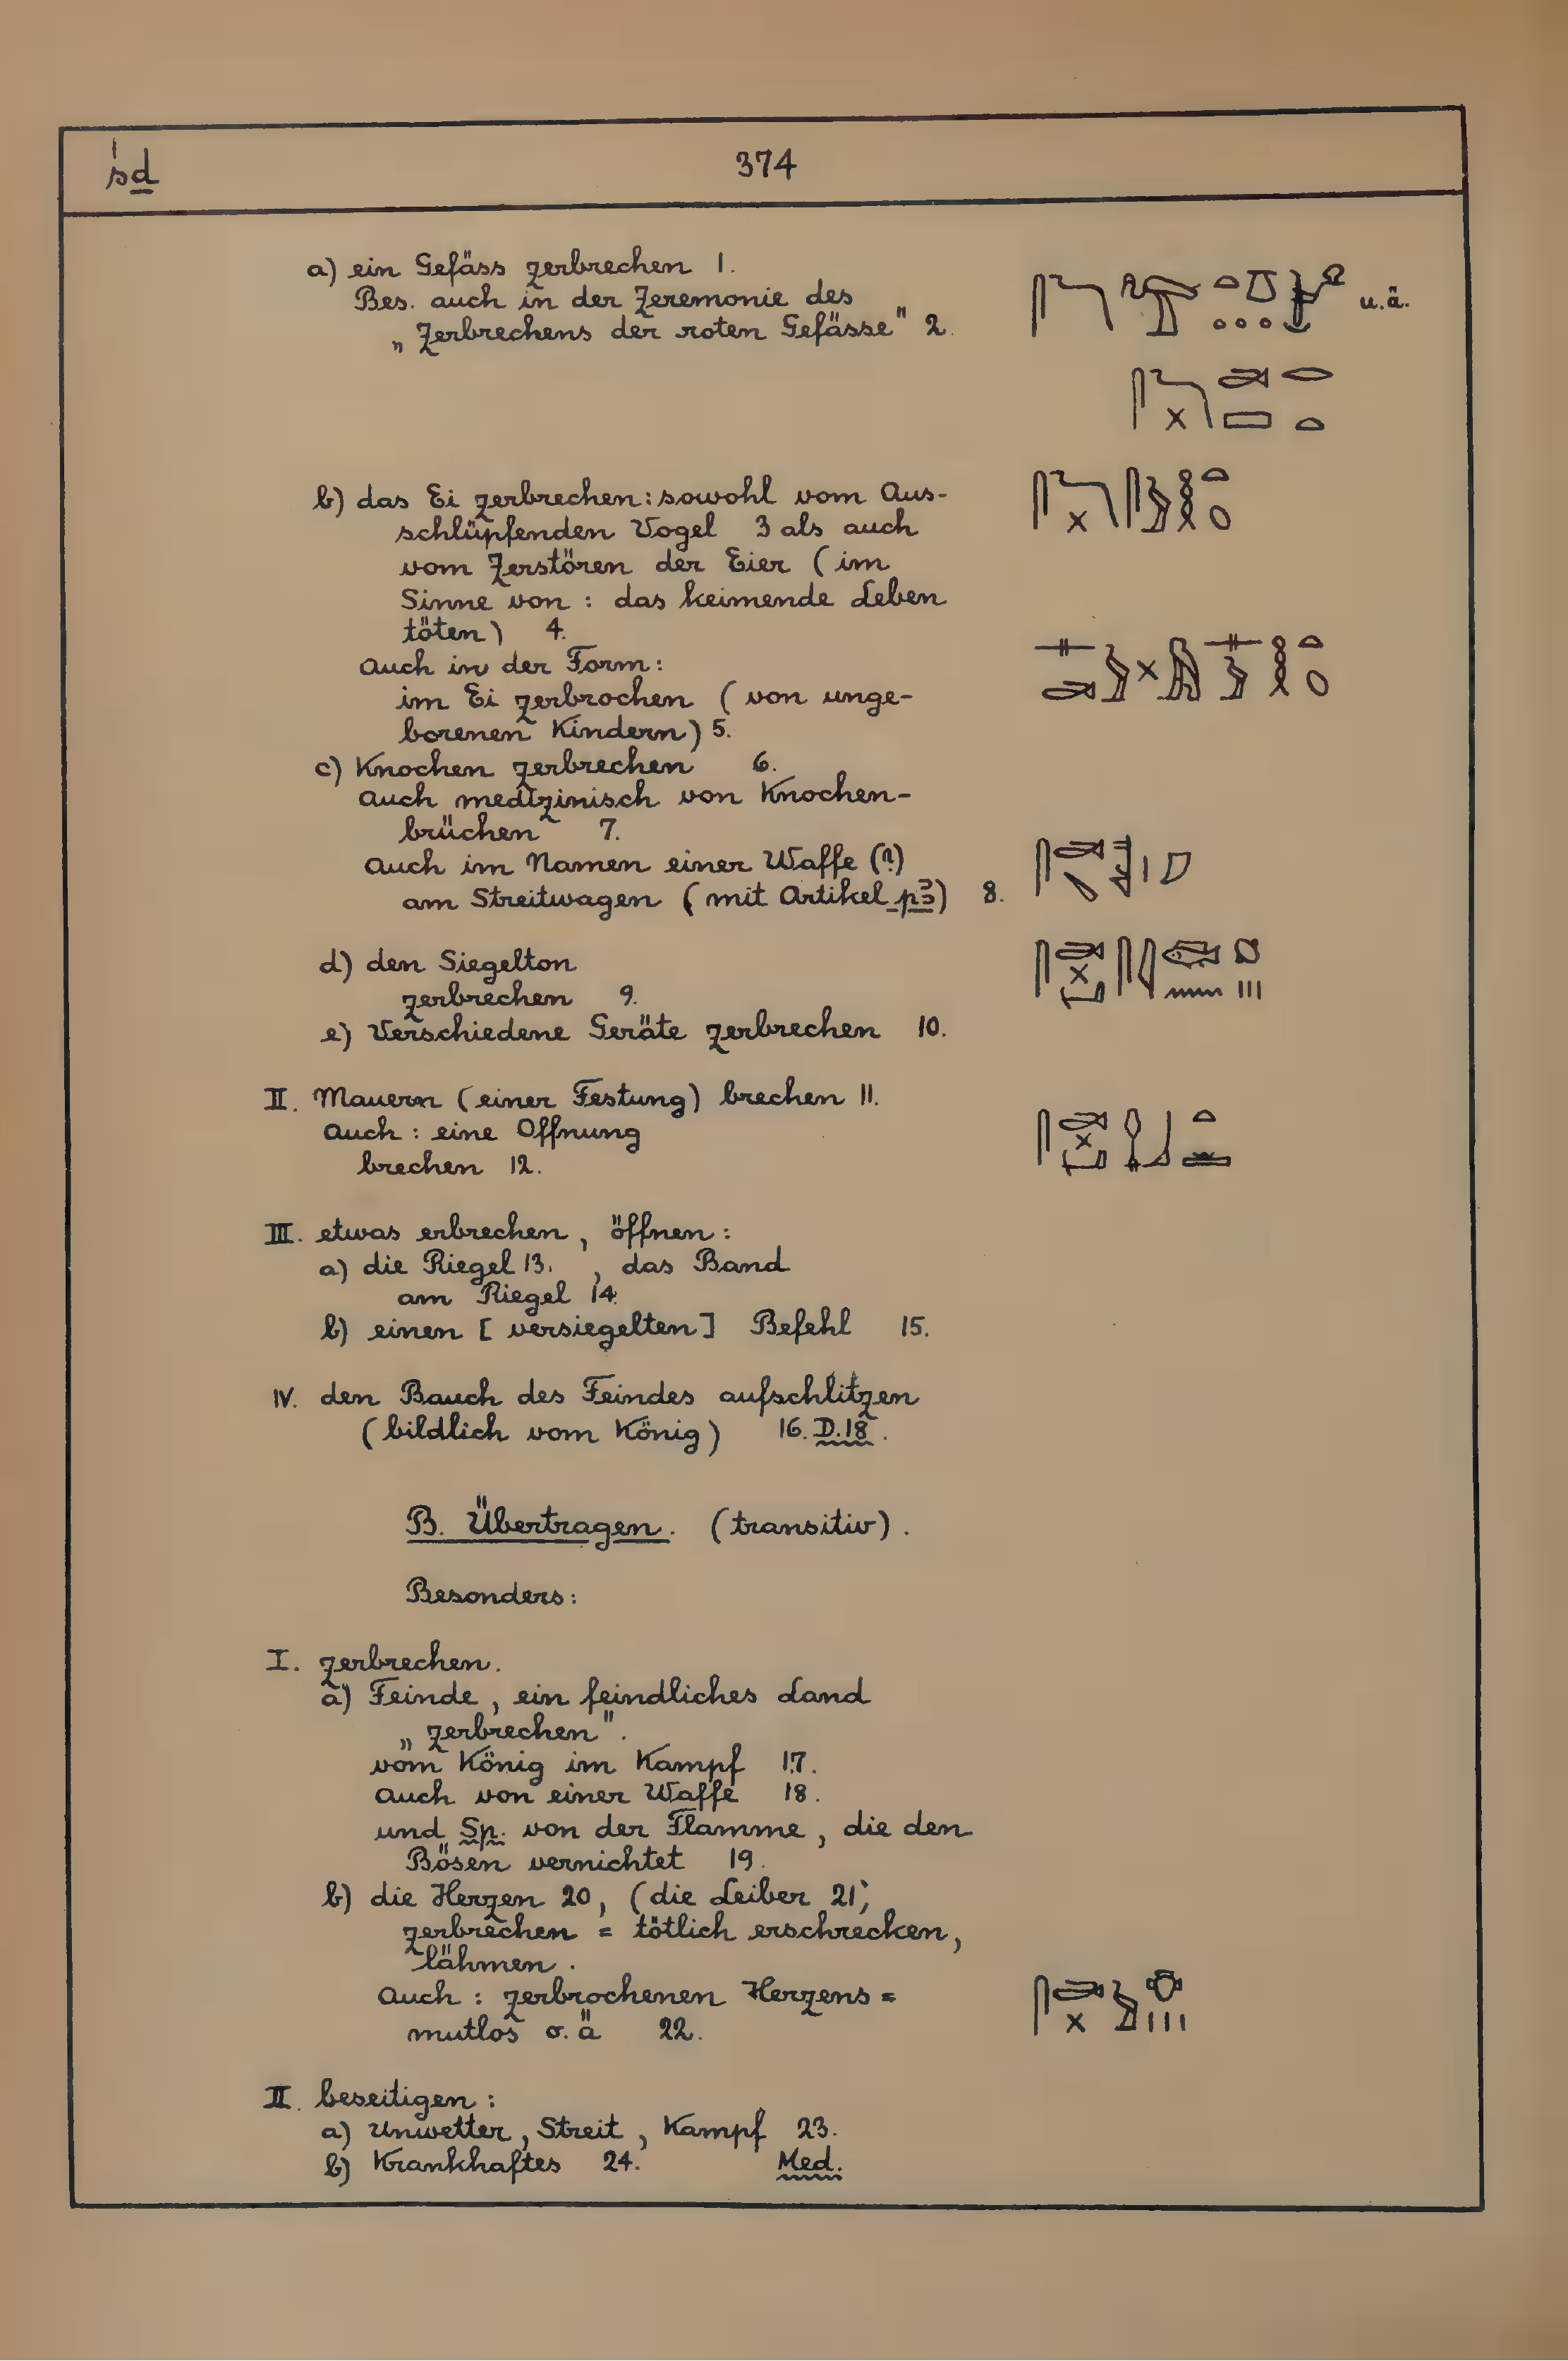 śḏ
374
a) ein Gefäss zerbrechen 1.
Bes. auch in der Zeremonie des
„Zerbrechens der roten Gefässe" 2.
u.ä.
b) das Ei zerbrechen: sowohl vom Aus-
schlüpfenden Vogel 3 als auch
vom Zerstören der Eier (im
Sinne von : das keimende Leben
töten) 4.
Auch in der Form:
im Ei zerbrochen (von unge-
borenen Kindern) 5.
c) Knochen zerbrechen 6.
Auch medizinisch von Knochen-
brüchen 7.
Auch im Namen einer Waffe (?)
am Streitwagen (mit Artikel pꜣ) 8.
d) den Siegelton
zerbrechen 9.
e) Verschiedene Geräte zerbrechen 10.
II. Mauern (einer Festung) brechen 11.
Auch : eine Offnung
brechen 12.
III. etwas erbrechen, öffnen :
a) die Riegel 13. , das Band
am Riegel 14.
b) einen [versiegelten] Befehl 15.
IV. den Bauch des Feindes aufschlitzen
(bildlich vom König) 16. D.18.
B. Übertragen. (transitiv).
Besonders:
I. zerbrechen.
a) Feinde, ein feindliches Land
„zerbrechen".
vom König im Kampf 17.
Auch von einer Waffe 18.
und Sp. von der Flamme, die den
Bösen vernichtet 19.
b) die Herzen 20, (die Leiber 21)
zerbrechen = tötlich erschrecken,
lähmen.
Auch : zerbrochenen Herzens =
mutlos o. ä 22.
II. beseitigen :
a) Unwetter, Streit, Kampf 23.
b) Krankhaftes 24. Med.